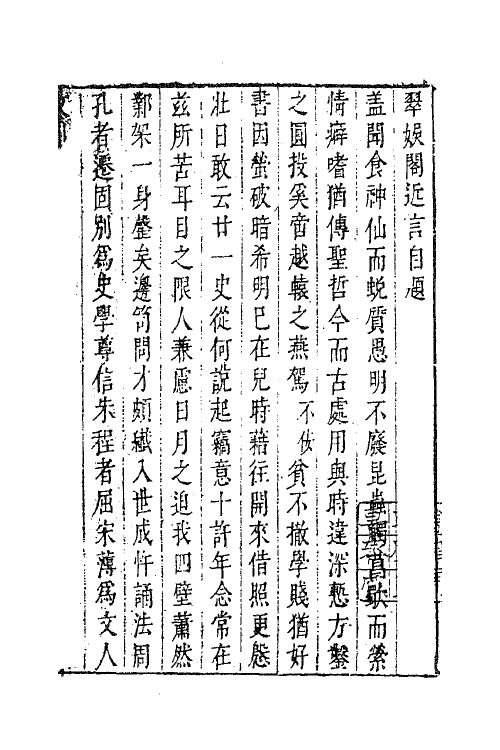 翠娛閣近言自題
盖聞食神仙而蛻質愚明不廢昆蟲觸菖歜而縈
情癖嗜猶傳聖哲今而古處用與時違深慙方鑿
之圓投奚啻越轅之燕駕不佞貧不撤學賤猶好
書因螢破暗希明已在兒時藉往開來借照更慇
壯日敢云廿一史從何說起竊意十許年念常在
兹所苦耳目之限人兼慮日月之迫我四壁蕭然
鄴架一身罄矣邊笥問才頗纎入世成忤誦法周
孔者遷固別爲史學尊信朱程者屈宋薄爲文人